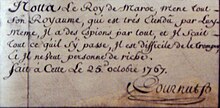 Notta Le Roy de Maroc mene tout
son Royaume, qui est très Etendu par Luy
Meme, Il a des Espions par tout, et Il sçait
tout ce qu'il s'y passe, Il est difficile de le tromper
Et Il ne veut personne de riche.
fait à Cette Le 25e octobre 1767.
Pournut